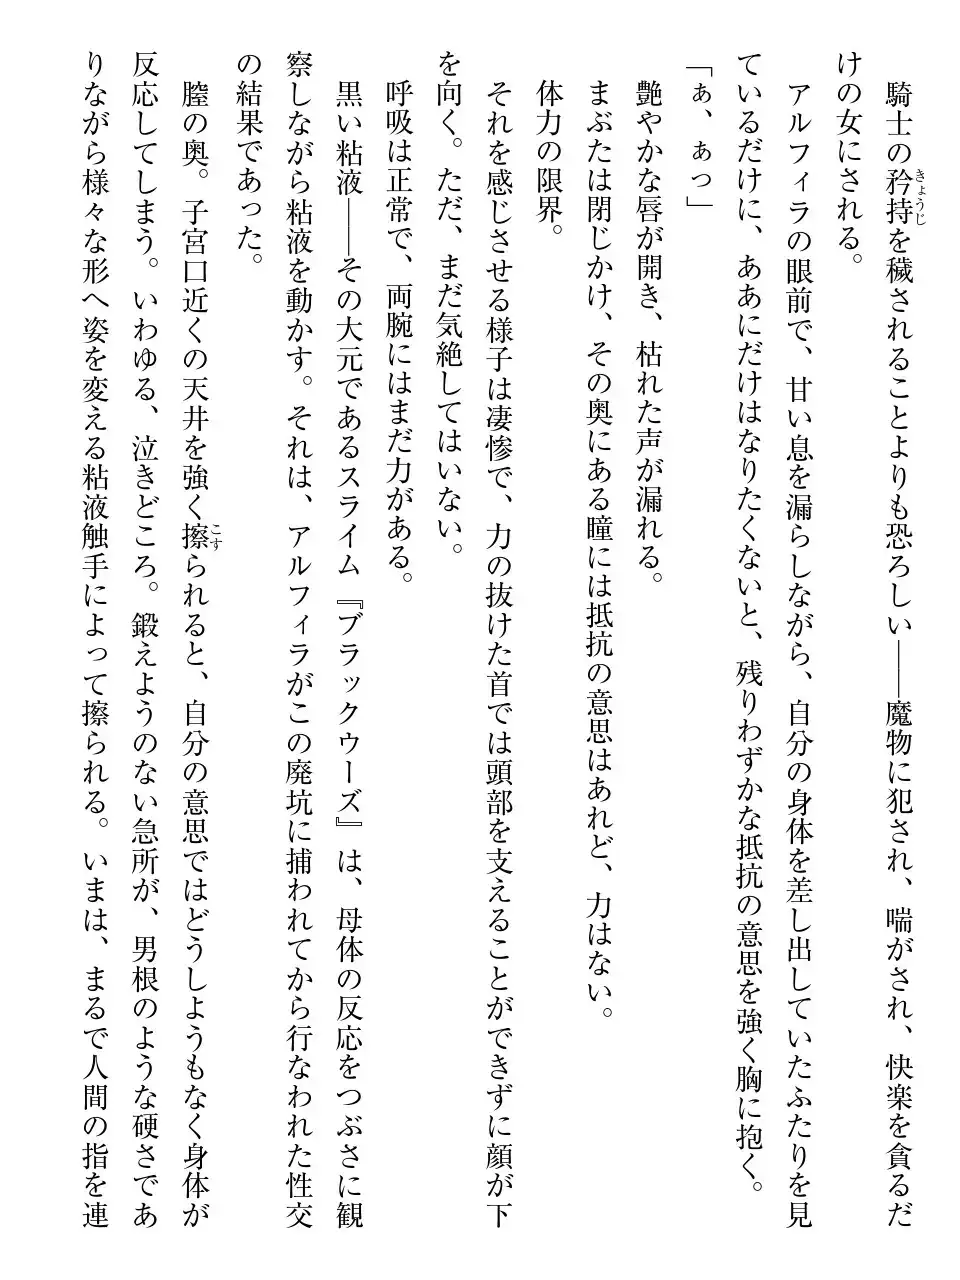 騎士の矜持を穢されることよりも恐ろしい――魔物に犯され、喘がされ、快楽を貪るだ
きょうじ
けの女にされる。
アルフィラの眼前で、甘い息を漏らしながら、自分の身体を差し出していたふたりを見
ているだけに、ああにだけはなりたくないと、残りわずかな抵抗の意思を強く胸に抱く。
「ぁ、ぁっ」
艶やかな唇が開き、枯れた声が漏れる。
まぶたは閉じかけ、その奥にある瞳には抵抗の意思はあれど、力はない。
体力の限界。
それを感じさせる様子は凄惨で、力の抜けた首では頭部を支えることができずに顔が下
を向く。ただ、まだ気絶してはいない。
呼吸は正常で、両腕にはまだ力がある。
黒い粘液――その大元であるスライム『ブラックウーズ』は、母体の反応をつぶさに観
察しながら粘液を動かす。それは、アルフィラがこの廃坑に捕われてから行なわれた性交
の結果であった。
膣の奥。子宮口近くの天井を強く擦られると、自分の意思ではどうしようもなく身体が
こす
反応してしまう。いわゆる、泣きどころ。鍛えようのない急所が、男根のような硬さであ
りながら様々な形へ姿を変える粘液触手によって擦られる。いまは、まるで人間の指を連